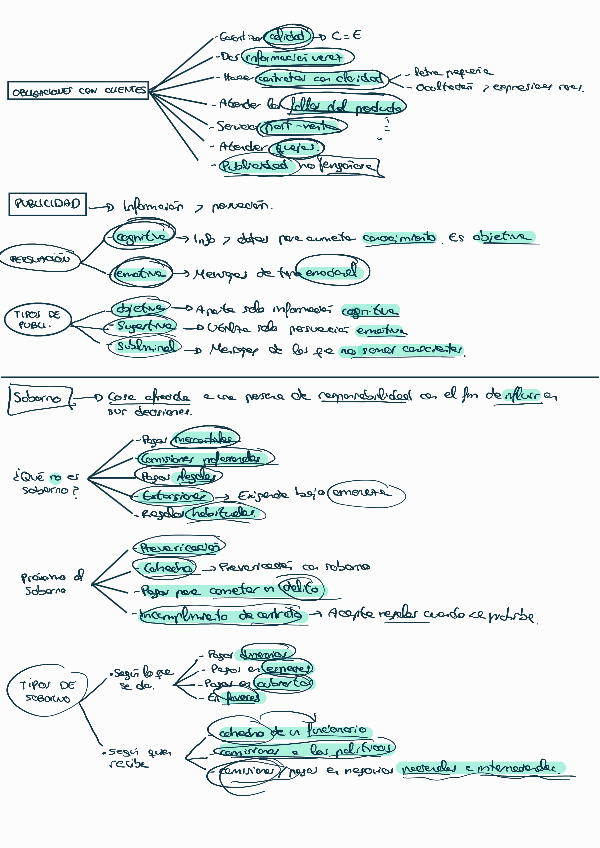 - Garantizar calidad → C = E
- Dar información veraz
- Hacer contratos con claridad
- letra pequeña
- Ocultación y expresiones
OBLIGACIONES CON CLIENTES
- Atender los fallos del producto
- Servicio post-venta
- Atender quejas.
- Publicidad no engañosa
PUBLICIDAD → Información y persuasión.
PERSUASIÓN
- cognitiva → Info y datos para aumentar conocimiento. Es objetiva
- emotiva → Mensajes de tipo emocional
TIPOS DE PUBLI.
- objetiva → Aporta solo información cognitiva
- Sugestiva → Utiliza solo persuasión emotiva
- Subliminal → Mensajes de los que no somos conscientes.
Soborno → Cosa ofrecida a una persona de responsabilidad con el fin de influir en
sus decisiones.
¿Qué no es soborno?
- Pagos
- Comisiones
- Pagos legales
- Extorsiones → Exigencia bajo amenaza
- Regalos habituales.
Próximo al Soborno
- Prevaricación
- Cohecho → Prevaricación con soborno
- Pagos para cometer un delito
- Incumplimiento de contrato → Aceptar regalos cuando se prohíbe.
TIPOS DE SOBORNO
• Según lo que se da.
- Pagos dinerarios
- Pagos en especies
- Pagos en
- En favores
• Según quien recibe
- cohecho de un funcionario
- comisiones a los políticos
- comisiones y pagos en negocios nacionales e internacionales.